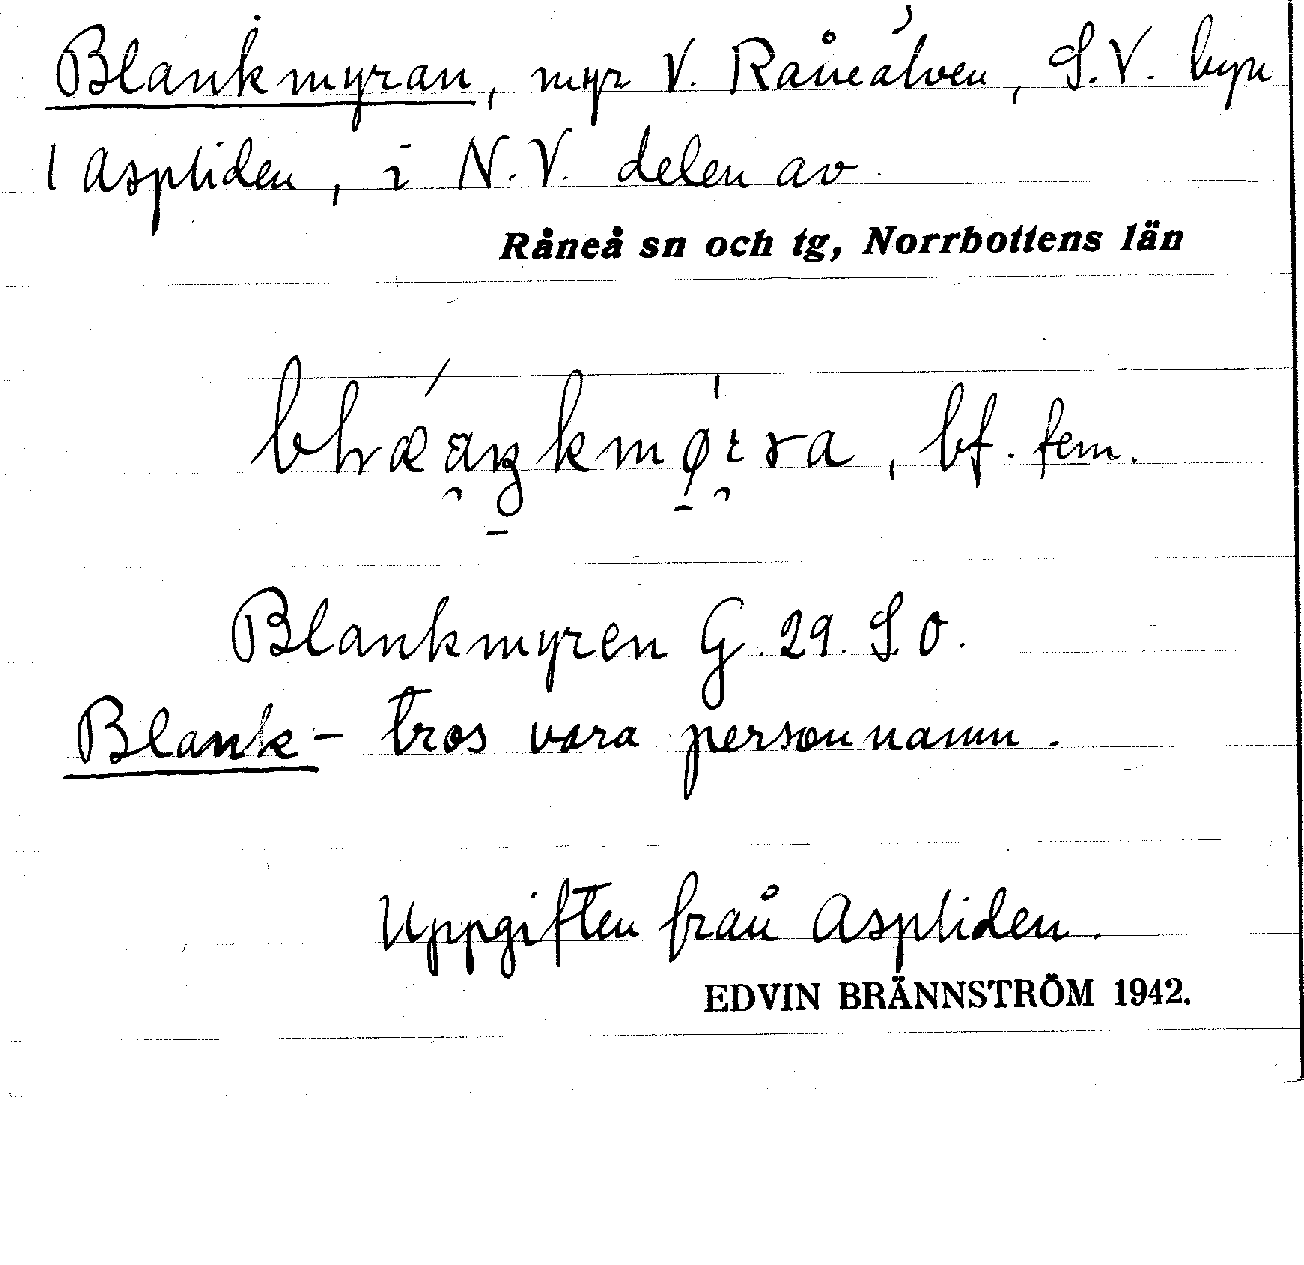 Blankmyran, myr V. Råneälven, S.V. byn
Aspliden, i N.V. delen av
Råneå sn och tg, Norrbottens län
bf. fem.
Blankmyren G. 29. S O.
Blank- tros vara personnamn.
Uppgiften från Aspliden.
EDVIN BRÄNNSTRÖM 1942.